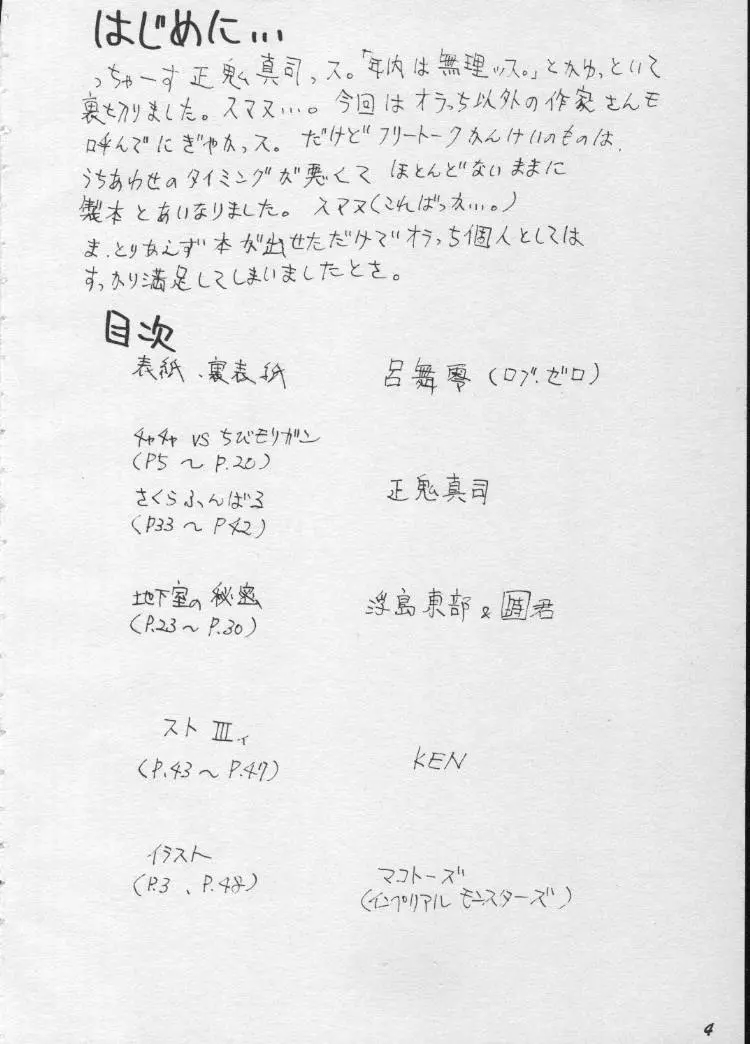 はじめに…
っちゃーす正鬼真司っス。「年内は無理ッス。」とかゆっといて
裏切りました。スマヌ…。今回はオラっち以外の作家さんモ
呼んでにぎやかっス。だけどフリートークかんけいのものは、
うちあわせのタイミングが悪くてほとんどないままに
製本とあいなりました。スマヌ(こればっかい…。)
ま、とりあえず本が出せただけでオラっち個人としては
すっかり満足してしまいましたとさ。
目次
表紙、裏表紙 呂舞零(ロブ・ゼロ)
チャチャ VS ちびモリガン
(P5 〜 P.20)
さくらふんばる 正鬼真司
(P33 〜 P42)
地下室の秘密 浮島東部 & 時君
(P.23 〜 P.30)
スト III
(P.43 〜 P.47) KEN
イラスト マコトーズ
(P.3 、P.48) (インプリアル モンスターズ)
4